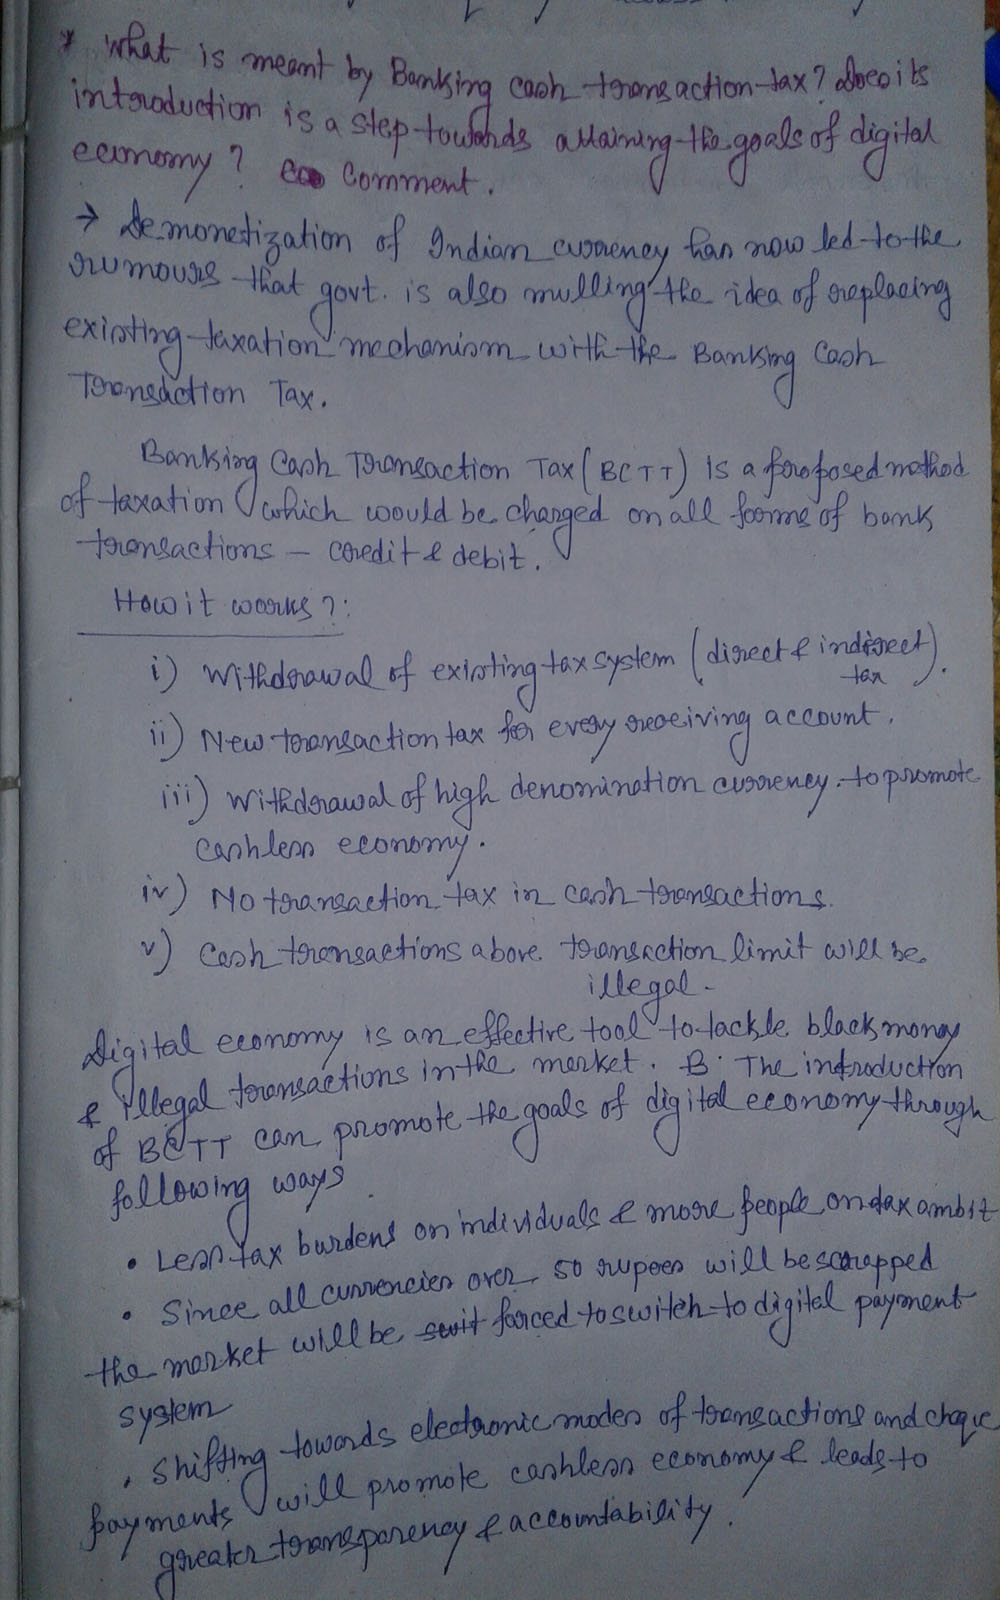 * What is meant by Banking cash transaction tax? Does its
introduction is a step towards attaining the goals of digital
economy? Comment.
→ Demonetization of Indian currency has now led to the
rumours that govt. is also mulling the idea of replacing
existing taxation mechanism with the Banking Cash
Transaction Tax.
Banking Cash Transaction Tax (BCTT) is a proposed method
of taxation which would be charged on all forms of bank
transactions – credit & debit.
How it works?:
i) Withdrawal of existing tax system (direct & indirect
tax).
ii) New transaction tax for every receiving account.
iii) Withdrawal of high denomination currency. to promote
cashless economy.
iv) No transaction tax in cash transactions.
v) Cash transactions above transaction limit will be
illegal.
Digital economy is an effective tool to tackle black money
& illegal transactions in the market. B. The introduction
of BCTT can promote the goals of digital economy through
following ways
• Less tax burdens on individuals & more people on tax ambit
• Since all currencies over 50 rupees will be scrapped
the market will be forced to switch to digital payment
system
• Shifting towards electronic modes of transactions and cheque
payments will promote cashless economy & leads to
greater transparency & accountability.